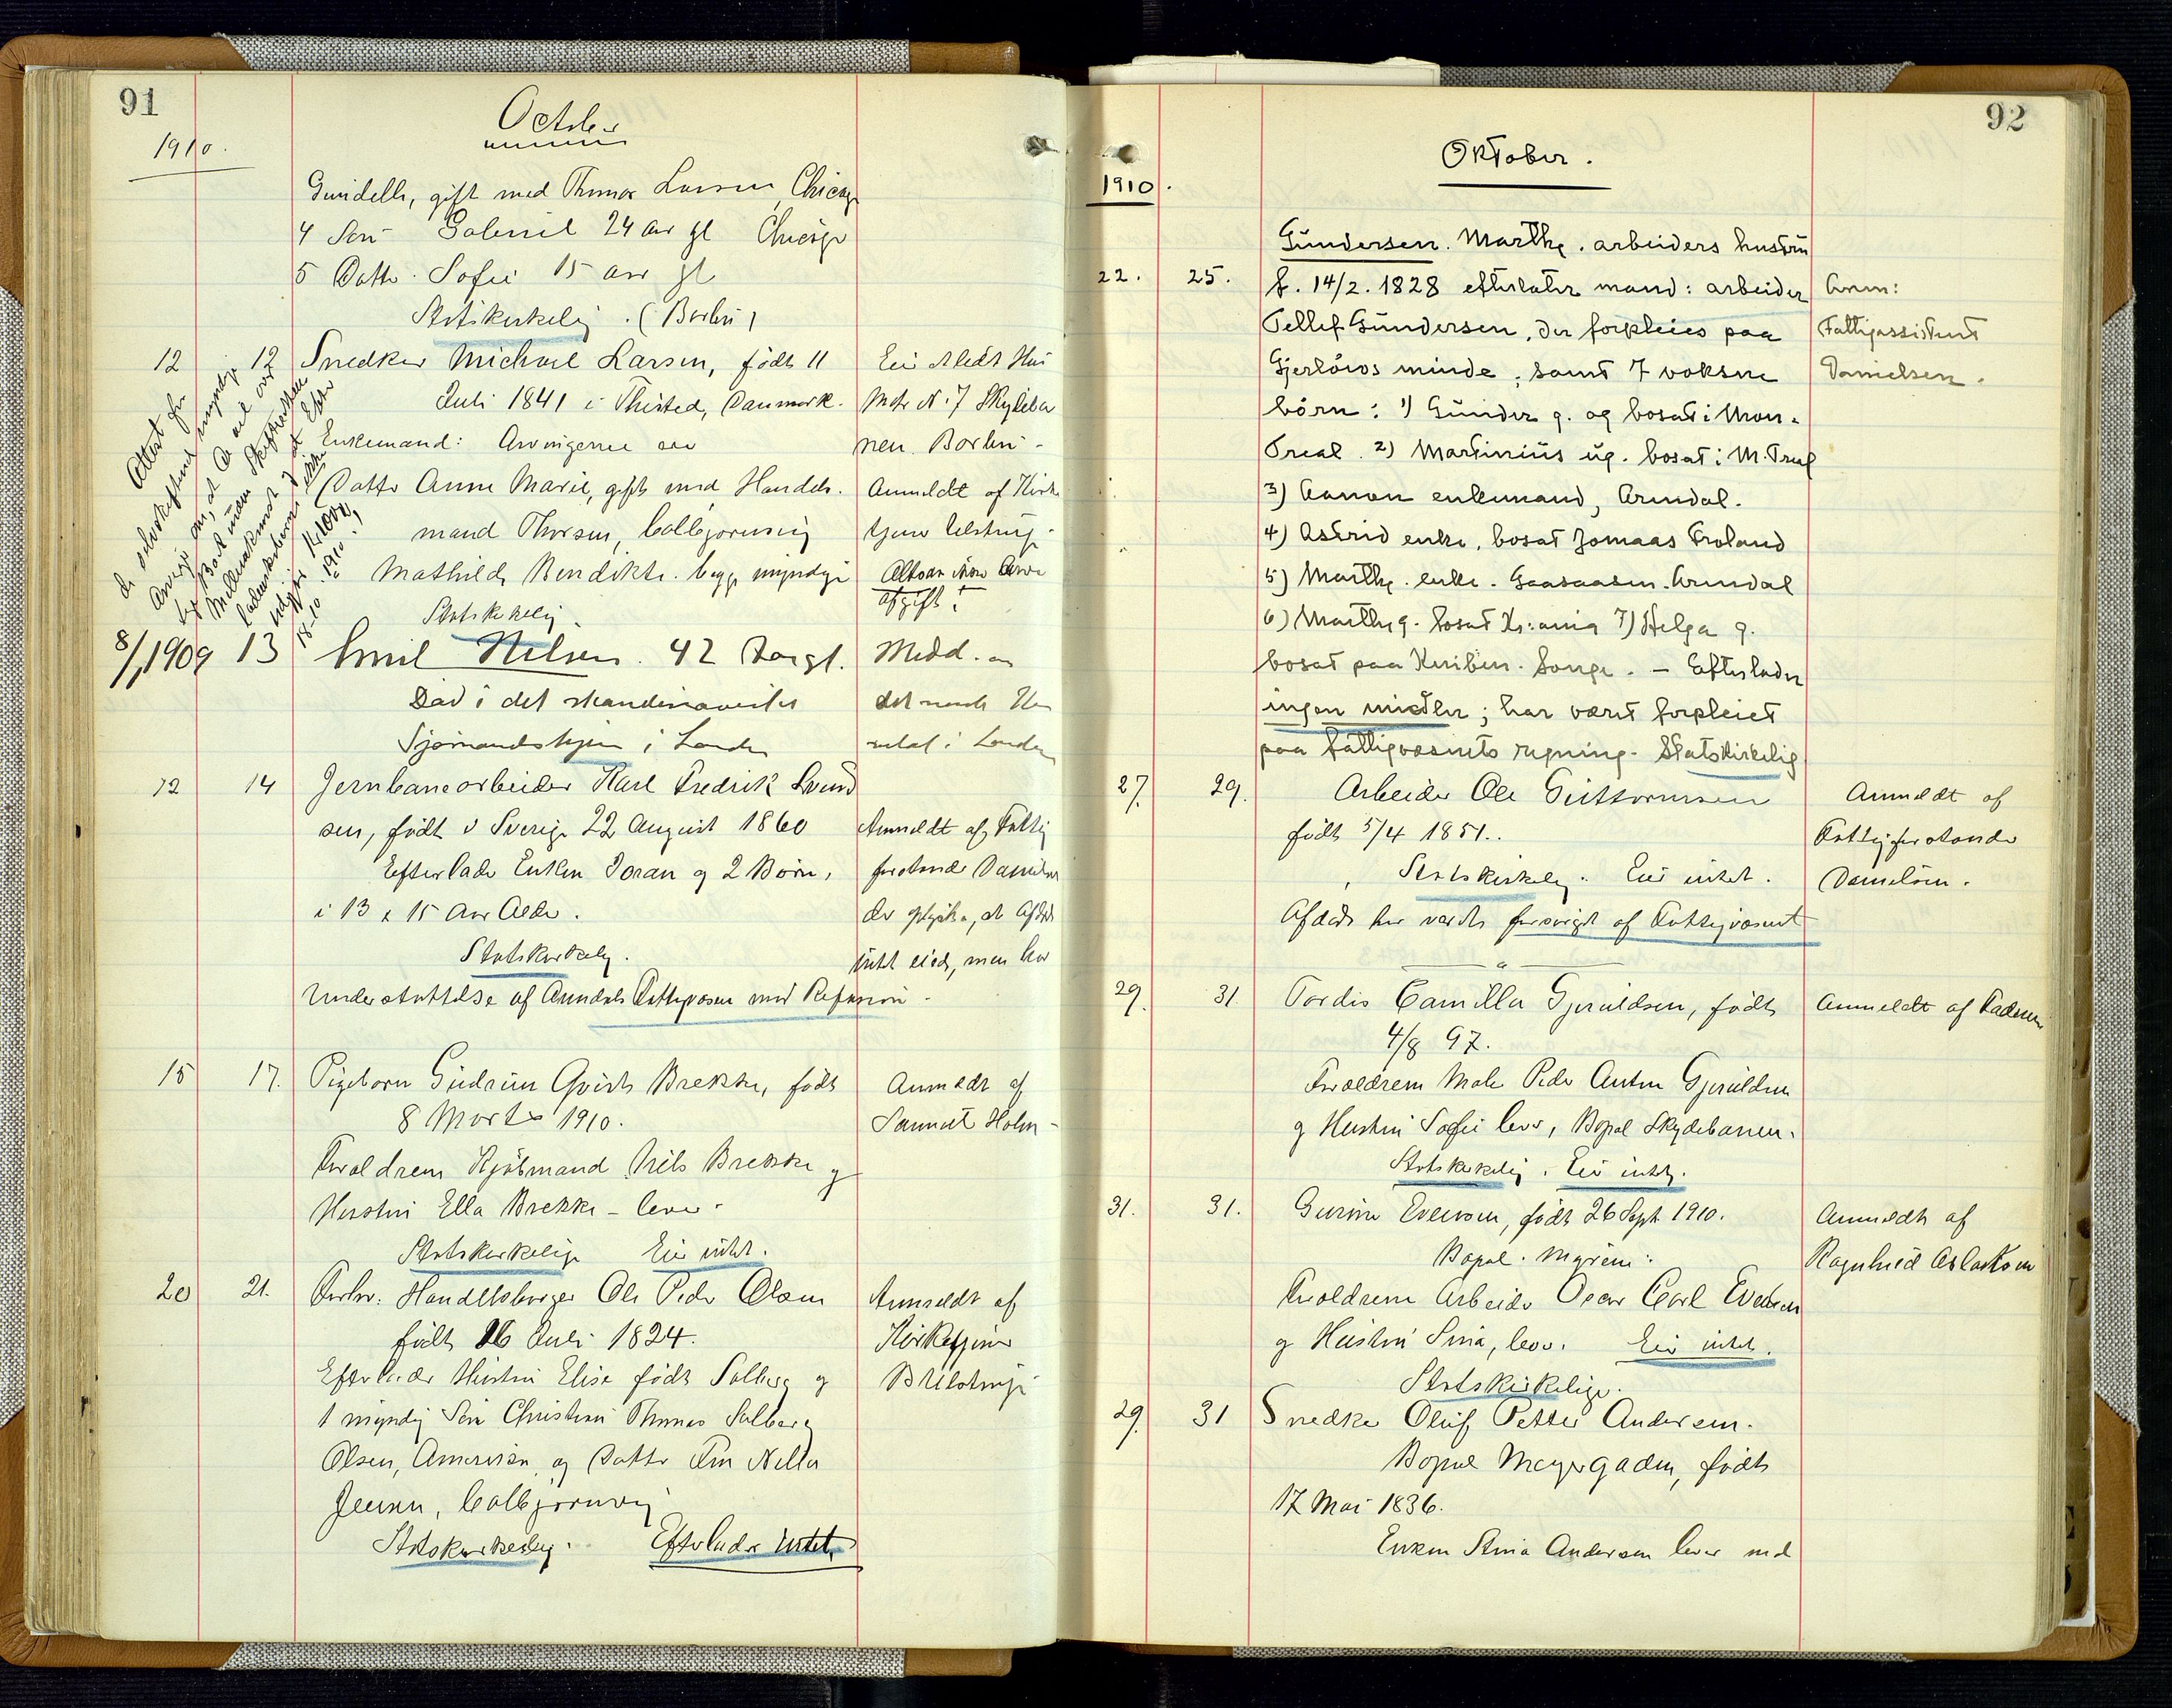 91
October
1910.
gift med Thomas Larsen, Chicago
4 Søn Gabriel 24 aar gl Chicago
5 Datter Sofie 15 aar gl
Statskirkelig. (Barbu)
12 12 Snedker Michael Larsen, født 11
Juli 1841 i Thisted, Danmark.
Enkemand: Arvingerne er
Datter Anne Marie, gift med Handels-
mand Thorsen, Colbjørnsvig
Mathilde Bendikte. begge myndige
Statskirkelig.
Matr No 7 Skyteba
nen. Barbu.
Anmeldt af Kirke
tjener Ulstrup.
Arve
afgift!
8/1 1909 13 Emil Nilsen. 42 Aar gl.
Død i det skandinaviske
Sjømandshjem i London
Medd. om
det norske Kon
sulat i London
12 14 Jernbanearbeider Karl Fredrik Svend
sen, født i Sverige 22 August 1860
Efterlader Enken Joran og 2 Børn,
i 13 & 15 Aars Alder.
Statskirkelig.
Understøttelse af Arendals Fattigvæsen mod Refusion.
Anmeldt af Fattig
forstander Danielsen
der oplyste, at Afdøde
intet eiede, men har
15 17. Pigebarn Gudrun Qvist Brekke, født
8 Marts 1910.
Forældrene Kjøbmand Nils Brekke og
Hustru Ella Brekke - lever.
Statskirkelige Eier intet.
Anmeldt af
Samuel Holm-
20 21. Forhv. Handelsborger Ole Peder Olsen
født 16 Juli 1824.
Efterlader Hustru Elise født Solberg og
1 myndig Søn Christian Thomas Solberg
Olsen, Amerika, og Datter Fru Nella
Jensen, Colbjørnsvig
Statskirkelig. Efterlader intet.
Anmeldt af
Kirketjener
B Ulstrup
92
Oktober.
1910.
Gundersen. Marthe. arbeiders hustru
22. 25. f. 14/2. 1828 efterlater mand: arbeider
Tellef Gundersen, der forpleies paa
Gjerløws minde, samt 7 voksne
børn: 1) Gunder g. og bosat i Mon-
treal. 2) Martinius ug. bosat i M.Treal
3) Aanon enkemand, Arendal.
4) Astrid enke, bosat Jomaas Froland
5) Marthe. enke. Gaasaasen. Arendal
6) Marthe g. bosat Kr:ania 7) Helga g.
bosat paa Songe. - Efterlader
ingen midler; har været forpleiet
paa fattigvæsnets regning. Statskirkelig
Anm:
Fattigassistent
Danielsen.
27. 29. Arbeider Ole Guttormsen
født 5/4 1851.
Statskirkelig. Eier intet.
Afdøde har været forsørget af Fattigvæsnet
Anmeldt af
Fattigforstander
Danielsen.
29. 31. Tordis Camilla Gjeruldsen, født
4/8 97.
Forældrene Maler Peder Anton Gjeruldsen
og Hustru Sofie lever, Bopæl Skydebanen.
Statskirkelig. Eier intet.
Anmeldt af Faderen
31. 31. Gurine Evensen, født 26 Sept 1910.
Bopæl. Myrene.
Forældrene Arbeider Oscar Carl Evensen
og Hustru Sina, lever. Eier intet.
Statskirkelige.
Anmeldt af
Ragnhild Aslaksen
29. 31 Snedker Oluf Petter Andersen.
Bopæl Meyergaden, født
17 Mai 1836.
Enken Stina Andersen lever med